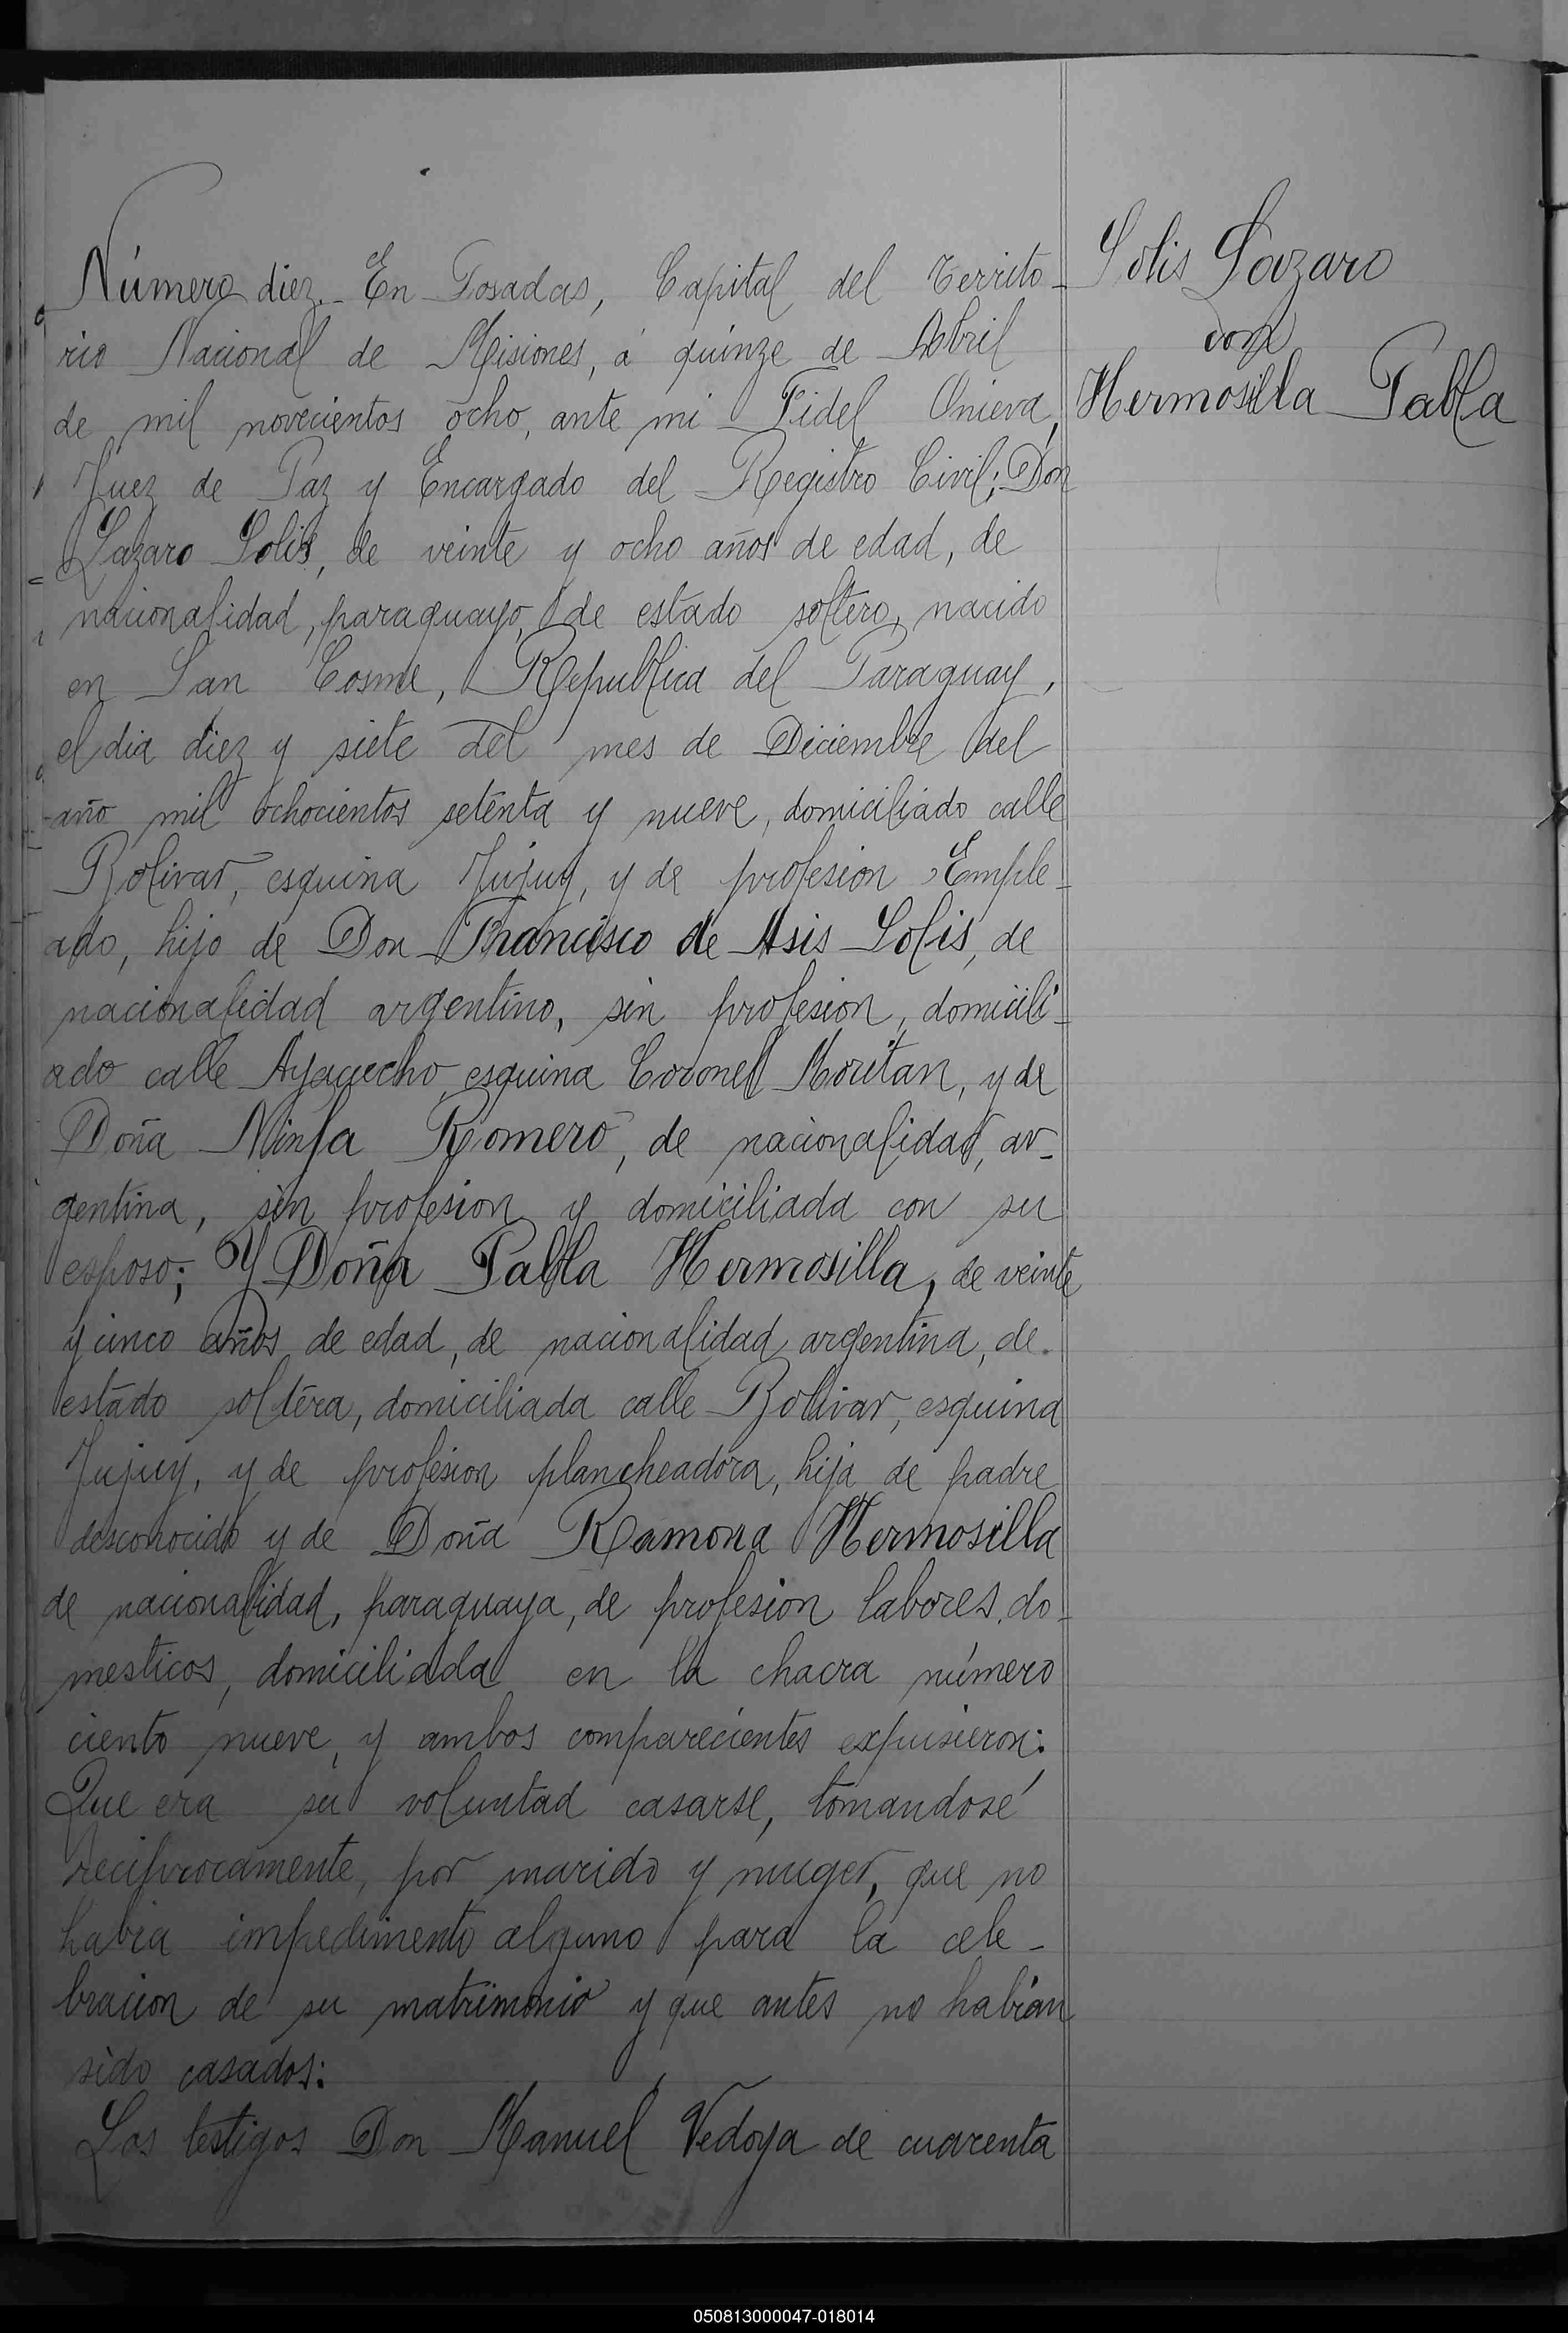 Solis Lazaro
con
Hermosilla Pabla
Número diez. En Posadas, Capital del Territo-
rio Nacional de Misiones, á quinze de Abril
de mil novecientos ocho, ante mi Fidel Onieva,
Juez de Paz y Encargado del Registro Civil; Don
Lazaro Solis, de veinte y ocho años de edad, de
nacionalidad, paraguayo, de estado soltero, nacido
en San Cosme, Republica del Paraguay,
el dia diez y siete del mes de Diciembre del
año mil ochocientos setenta y nueve, domiciliado calle
Bolivar, esquina Jujuy, y de profesion Emple-
ado, hijo de Don Francisco de Asis Solis, de
nacionalidad argentino, sin profesion, domicili-
ado calle Ayacucho esquina Coronel Moritan, y de
Doña Ninfa Romero, de nacionalidad, ar-
gentina, sin profesion y domiciliada con su
esposo; Y Doña Pabla Hermosilla, de veinte
y cinco años de edad, de nacionalidad argentina, de
estado soltera, domiciliada calle Bolivar, esquina
Jujuy, y de profesion plancheadora, hija de padre
desconocido y de Doña Ramona Hermosilla
de nacionalidad, paraguaya, de profesion labores do-
mesticos, domiciliada en la chacra número
ciento nueve, y ambos comparecientes expusieron:
Que era su voluntad casarse, tomandosé
reciprocamente, por marido y muger, que no
habia impedimento alguno para la cele-
bracion de su matrimonio y que antes no habian
sido casados:
Los testigos Don Manuel Vedoya de cuarenta
050813000047-018014